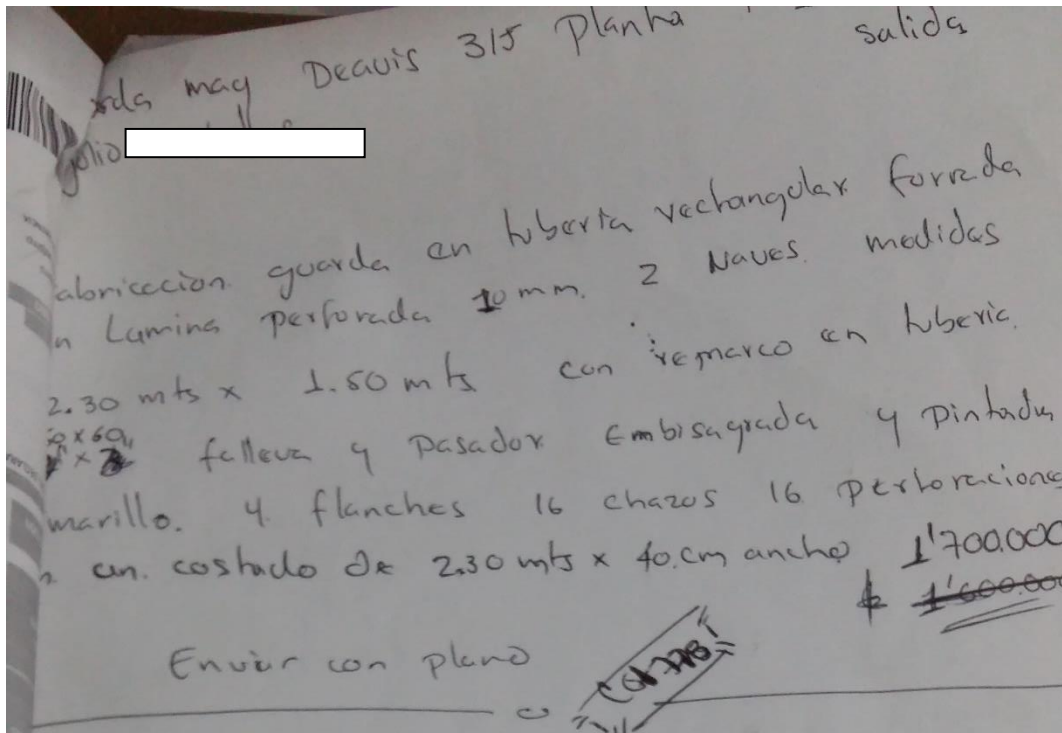 may Deavis 315 Planta salida
Julio
abricacion guarda en tuberia rectangular forrada
n Lamina perforada 10 mm. 2 Naves. medidas
2.30 mts x 1.50 mts con remarco en tuberia.
x 60
falleva y Pasador Embisagrada y Pintada
marillo. 4 flanches 16 chazos 16 perforacione
un. costado de 2.30 mts x 40.cm ancho 1'700.000
1'600.000
Enviar con plano